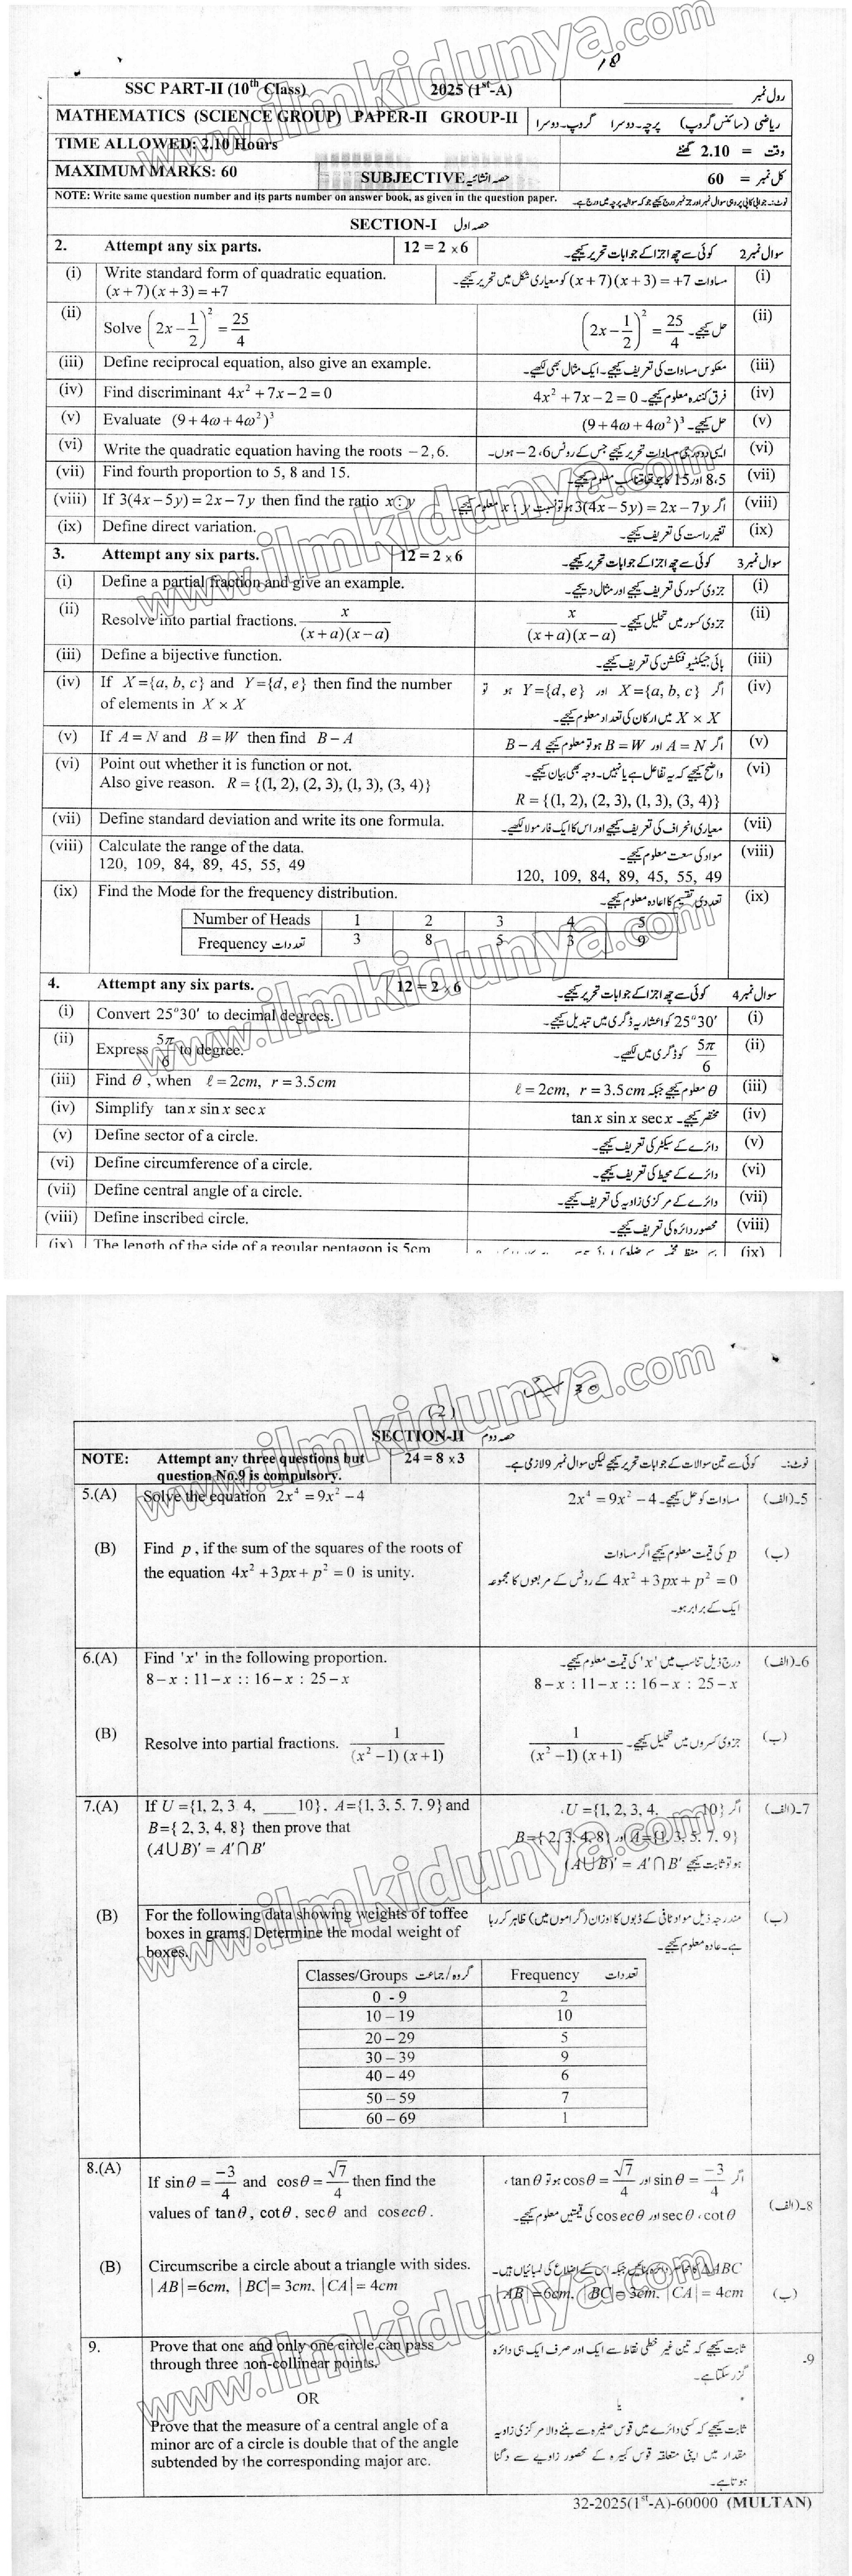 18
SSC PART-II (10th Class) 2025 (1st-A) رول نمبر
MATHEMATICS (SCIENCE GROUP) PAPER-II GROUP-II ریاضی (سائنس گروپ) پرچہ۔دوسرا گروپ۔دوسرا
TIME ALLOWED: 2.10 Hours وقت = 2.10 گھنٹے
MAXIMUM MARKS: 60 SUBJECTIVE حصہ انشائیہ کل نمبر = 60
NOTE: Write same question number and its parts number on answer book, as given in the question paper.
SECTION-I حصہ اول
2. Attempt any six parts. 12 = 2 x 6 کوئی سے چھ اجزا کے جوابات تحریر کیجیے۔ سوال نمبر 2
(i) Write standard form of quadratic equation. مساوات (x+7)(x+3) = +7 کو معیاری شکل میں تحریر کیجیے۔ (i)
(x+7)(x+3) = +7
(ii) Solve (2x − 1/2)² = 25/4 حل کیجیے۔ (2x − 1/2)² = 25/4 (ii)
(iii) Define reciprocal equation, also give an example. معکوس مساوات کی تعریف کیجیے۔ ایک مثال بھی لکھیے۔ (iii)
(iv) Find discriminant 4x² + 7x − 2 = 0 فرق کنندہ معلوم کیجیے۔ 4x² + 7x − 2 = 0 (iv)
(v) Evaluate (9 + 4ω + 4ω²)³ حل کیجیے۔ (9 + 4ω + 4ω²)³ (v)
(vi) Write the quadratic equation having the roots − 2, 6. ایسی دو درجی مساوات تحریر کیجیے جس کے روٹس 6، 2 − ہوں۔ (vi)
(vii) Find fourth proportion to 5, 8 and 15. 8،5 اور 15 کا چوتھا تناسب معلوم کیجیے۔ (vii)
(viii) If 3(4x − 5y) = 2x − 7y then find the ratio x : y اگر 3(4x − 5y) = 2x − 7y ہو تو نسبت x : y معلوم کیجیے۔ (viii)
(ix) Define direct variation. تغیر راست کی تعریف کیجیے۔ (ix)
3. Attempt any six parts. 12 = 2 x 6 کوئی سے چھ اجزا کے جوابات تحریر کیجیے۔ سوال نمبر 3
(i) Define a partial fraction and give an example. جزوی کسور کی تعریف کیجیے اور مثال دیجیے۔ (i)
(ii) Resolve into partial fractions. x/((x+a)(x−a)) جزوی کسور میں تحلیل کیجیے۔ x/((x+a)(x−a)) (ii)
(iii) Define a bijective function. بائی جیکٹیو فنکشن کی تعریف کیجیے۔ (iii)
(iv) If X={a, b, c} and Y={d, e} then find the number اگر X={a, b, c} اور Y={d, e} ہو تو (iv)
of elements in X × X X × X میں ارکان کی تعداد معلوم کیجیے۔
(v) If A = N and B = W then find B − A اگر A = N اور B = W ہو تو معلوم کیجیے B − A (v)
(vi) Point out whether it is function or not. واضح کیجیے کہ یہ تفاعل ہے یا نہیں۔ وجہ بھی بیان کیجیے۔ (vi)
Also give reason. R = {(1, 2), (2, 3), (1, 3), (3, 4)} R = {(1, 2), (2, 3), (1, 3), (3, 4)}
(vii) Define standard deviation and write its one formula. معیاری انحراف کی تعریف کیجیے اور اس کا ایک فارمولا لکھیے۔ (vii)
(viii) Calculate the range of the data. مواد کی سعت معلوم کیجیے۔ (viii)
120, 109, 84, 89, 45, 55, 49 120, 109, 84, 89, 45, 55, 49
(ix) Find the Mode for the frequency distribution. تعددی تقسیم کا عادہ معلوم کیجیے۔ (ix)
Number of Heads 1 2 3 4 5
Frequency تعددات 3 8 5 3 9
4. Attempt any six parts. 12 = 2 x 6 کوئی سے چھ اجزا کے جوابات تحریر کیجیے۔ سوال نمبر 4
(i) Convert 25°30′ to decimal degrees. 25°30′ کو اعشاریہ ڈگری میں تبدیل کیجیے۔ (i)
(ii) Express 5π/6 to degree. 5π/6 کو ڈگری میں لکھیے۔ (ii)
(iii) Find θ , when ℓ = 2cm, r = 3.5cm θ معلوم کیجیے جبکہ ℓ = 2cm, r = 3.5cm (iii)
(iv) Simplify tan x sin x sec x مختصر کیجیے۔ tan x sin x sec x (iv)
(v) Define sector of a circle. دائرے کے سیکٹر کی تعریف کیجیے۔ (v)
(vi) Define circumference of a circle. دائرے کے محیط کی تعریف کیجیے۔ (vi)
(vii) Define central angle of a circle. دائرے کے مرکزی زاویہ کی تعریف کیجیے۔ (vii)
(viii) Define inscribed circle. محصور دائرہ کی تعریف کیجیے۔ (viii)
(ix) The length of the side of a regular pentagon is 5cm (ix)
30
(2)
SECTION-II حصہ دوم
NOTE: Attempt any three questions but 24 = 8 x 3 نوٹ:۔ کوئی سے تین سوالات کے جوابات تحریر کیجیے لیکن سوال نمبر 9 لازمی ہے۔
question No.9 is compulsory.
5.(A) Solve the equation 2x⁴ = 9x² − 4 مساوات کو حل کیجیے۔ 2x⁴ = 9x² − 4 5۔(الف)
(B) Find p , if the sum of the squares of the roots of p کی قیمت معلوم کیجیے اگر مساوات (ب)
the equation 4x² + 3px + p² = 0 is unity. 4x² + 3px + p² = 0 کے روٹس کے مربعوں کا مجموعہ
ایک کے برابر ہو۔
6.(A) Find 'x' in the following proportion. درج ذیل تناسب میں 'x' کی قیمت معلوم کیجیے۔ 6۔(الف)
8 − x : 11 − x :: 16 − x : 25 − x 8 − x : 11 − x :: 16 − x : 25 − x
(B) Resolve into partial fractions. 1/((x² −1) (x+1)) جزوی کسروں میں تحلیل کیجیے۔ 1/((x² −1) (x+1)) (ب)
7.(A) If U ={1, 2, 3 4, ____10}. A={1, 3, 5, 7, 9} and اگر U ={1, 2, 3, 4, ____10}، 7۔(الف)
B={ 2, 3, 4, 8} then prove that A={1, 3, 5, 7, 9} اور B={ 2, 3, 4, 8}
(A∪B)′ = A′∩B′ ہو تو ثابت کیجیے (A∪B)′ = A′∩B′
(B) For the following data showing weights of toffee مندرجہ ذیل مواد ٹافی کے ڈبوں کا اوزان (گراموں میں) ظاہر کر رہا (ب)
boxes in grams. Determine the modal weight of ہے۔ عادہ معلوم کیجیے۔
boxes.
Classes/Groups گروہ/جماعت Frequency تعددات
0 - 9 2
10 – 19 10
20 – 29 5
30 – 39 9
40 – 49 6
50 – 59 7
60 – 69 1
8.(A) If sin θ = −3/4 and cos θ = √7/4 then find the اگر sin θ = −3/4 اور cos θ = √7/4 ہو تو tan θ ، 8۔(الف)
values of tan θ , cot θ , sec θ and cosec θ . cot θ ، sec θ اور cosec θ کی قیمتیں معلوم کیجیے۔
(B) Circumscribe a circle about a triangle with sides. (ب)
| AB | =6cm, | BC | = 3cm, | CA | = 4cm | AB | =6cm, | BC | = 3cm, | CA | = 4cm
9. Prove that one and only one circle can pass ثابت کیجیے کہ تین غیر خطی نقاط سے ایک اور صرف ایک ہی دائرہ 9-
through three non-collinear points. گزر سکتا ہے۔
OR یا
Prove that the measure of a central angle of a ثابت کیجیے کہ کسی دائرے میں قوس صغیرہ سے بننے والا مرکزی زاویہ
minor arc of a circle is double that of the angle مقدار میں اپنی متعلقہ قوس کبیرہ کے محصور زاویے سے دگنا
subtended by the corresponding major arc. ہوتا ہے۔
32-2025(1st-A)-60000 (MULTAN)
www.ilmkidunya.com
www.ilmkidunya.com
www.ilmkidunya.com
www.ilmkidunya.com